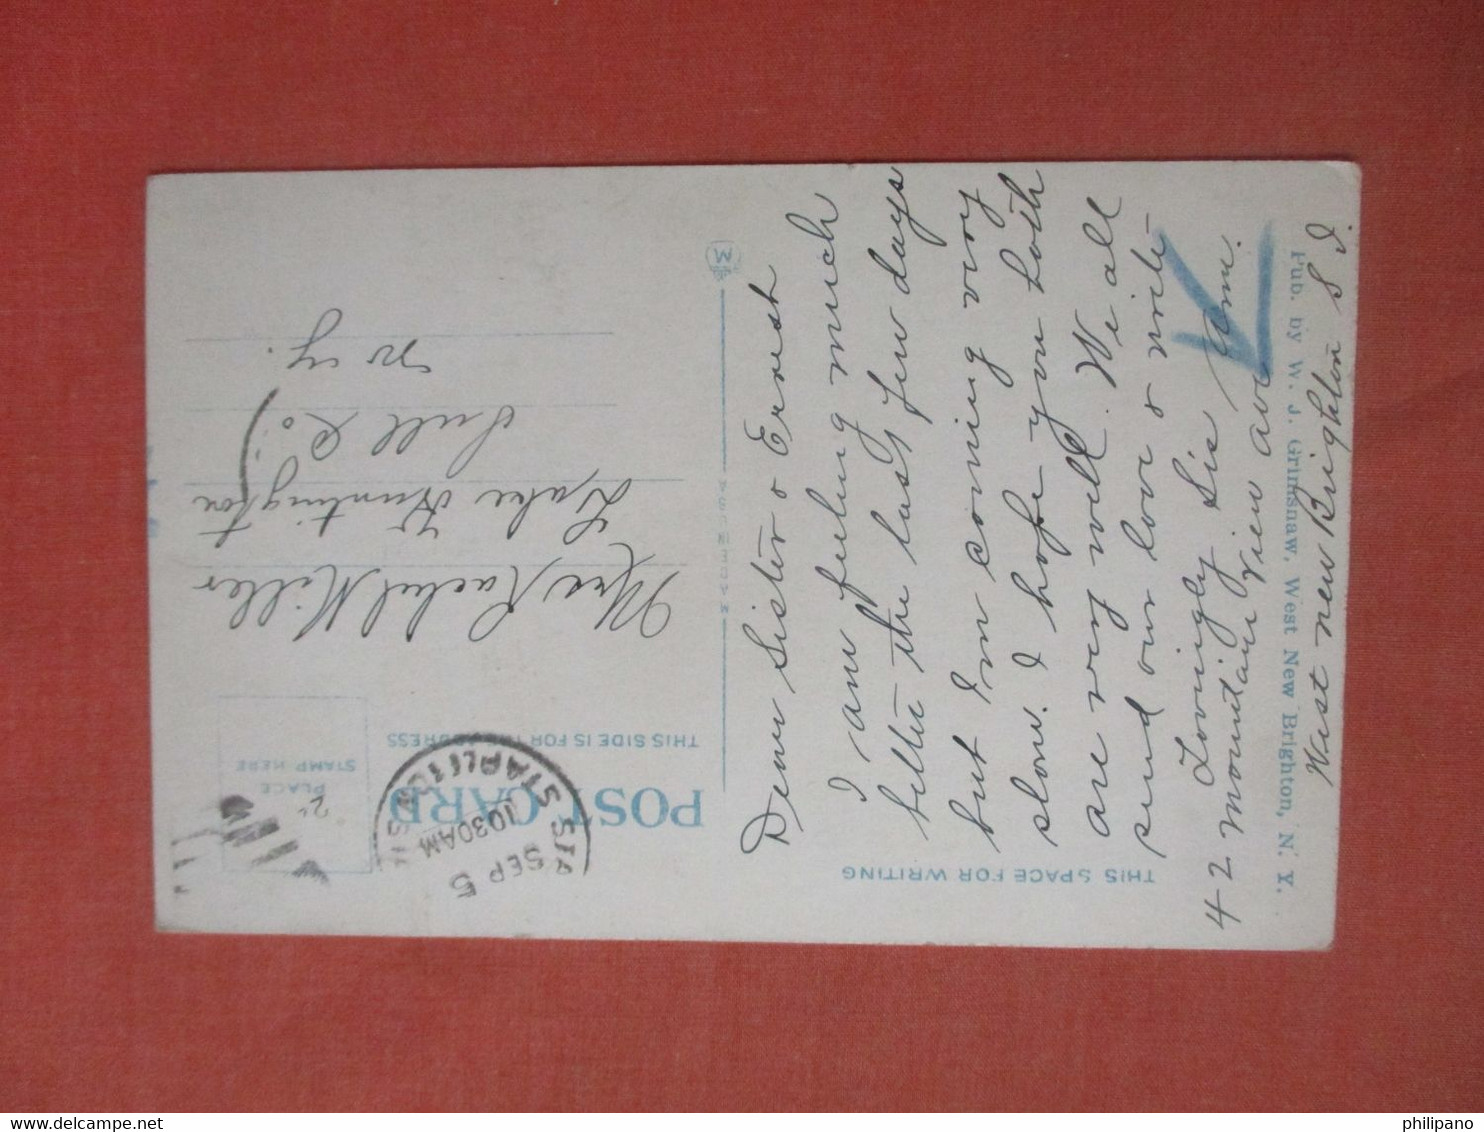 Dear Sister & Ernest
I am feeling much
better the last few days
but I'm coming very
slow. I hope you both
are very well. We all
send our love & write
Lovingly Sis Ann.
42 Mountain View ave
West new Brighton S I.
THIS SPACE FOR WRITING
Pub. by W. J. Grimshaw, West New Brighton, N. Y.
POST CARD
THIS SIDE IS FOR THE ADDRESS
PLACE
STAMP HERE
SEP 5
1030AM
STAPLETON
Mrs Rachel Miller
Lake Huntington
Sull Co.
N Y.
M
philipano